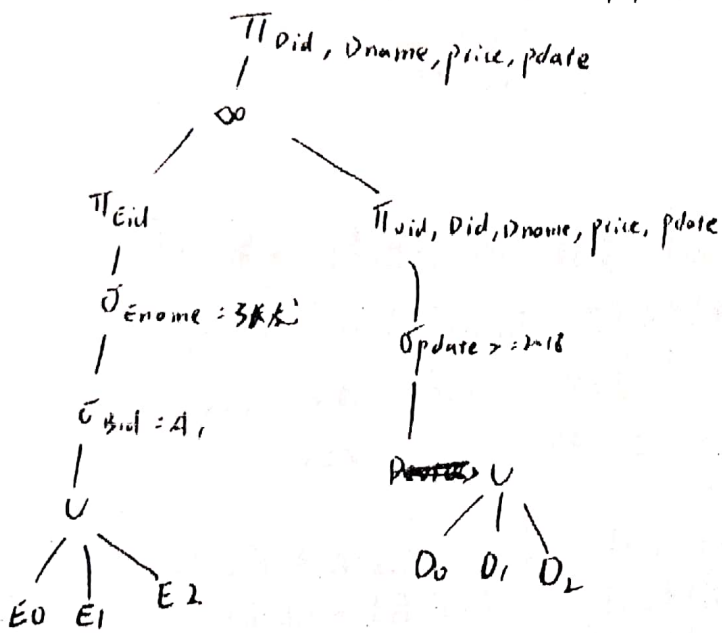 Π Did, Dname, price, pdate
∞
Π Eid
Π Did, Dname, price, pdate
σ Ename =
σ pdate >=2018
σ Bid = A1
∪
∪
D0 D1 D2
E0 E1 E2